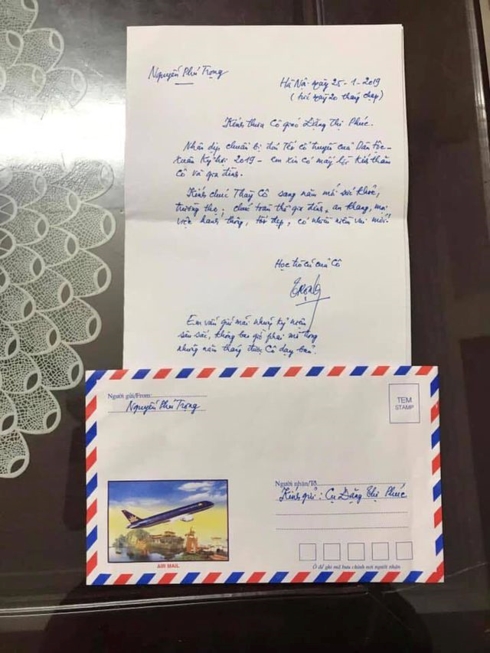 Nguyễn Phú Trọng
Hà Nội ngày 25-1-2019
(tức ngày 20 tháng chạp)
Kính thưa Cô giáo Đặng Thị Phúc.
Nhân dịp chuẩn bị đón Tết cổ truyền của Dân tộc -
Xuân Kỷ hợi 2019 - em xin có mấy lời kính thăm
Cô và gia đình.
Kính chúc Thầy Cô sang năm mới sức khỏe,
trường thọ; chúc toàn thể gia đình, an khang, mọi
việc hanh thông, tốt đẹp, có nhiều niềm vui mới.
Học trò cũ của Cô
Trọng
Em vẫn giữ mãi những kỷ niệm
sâu sắc, không bao giờ phai mờ trong
những năm tháng được Cô dạy bảo.
Người gửi/From:
Nguyễn Phú Trọng
TEM
STAMP
Người nhận/To:
Kính gửi: Cụ Đặng Thị Phúc
AIR MAIL
Ô để ghi mã bưu chính nơi người nhận.